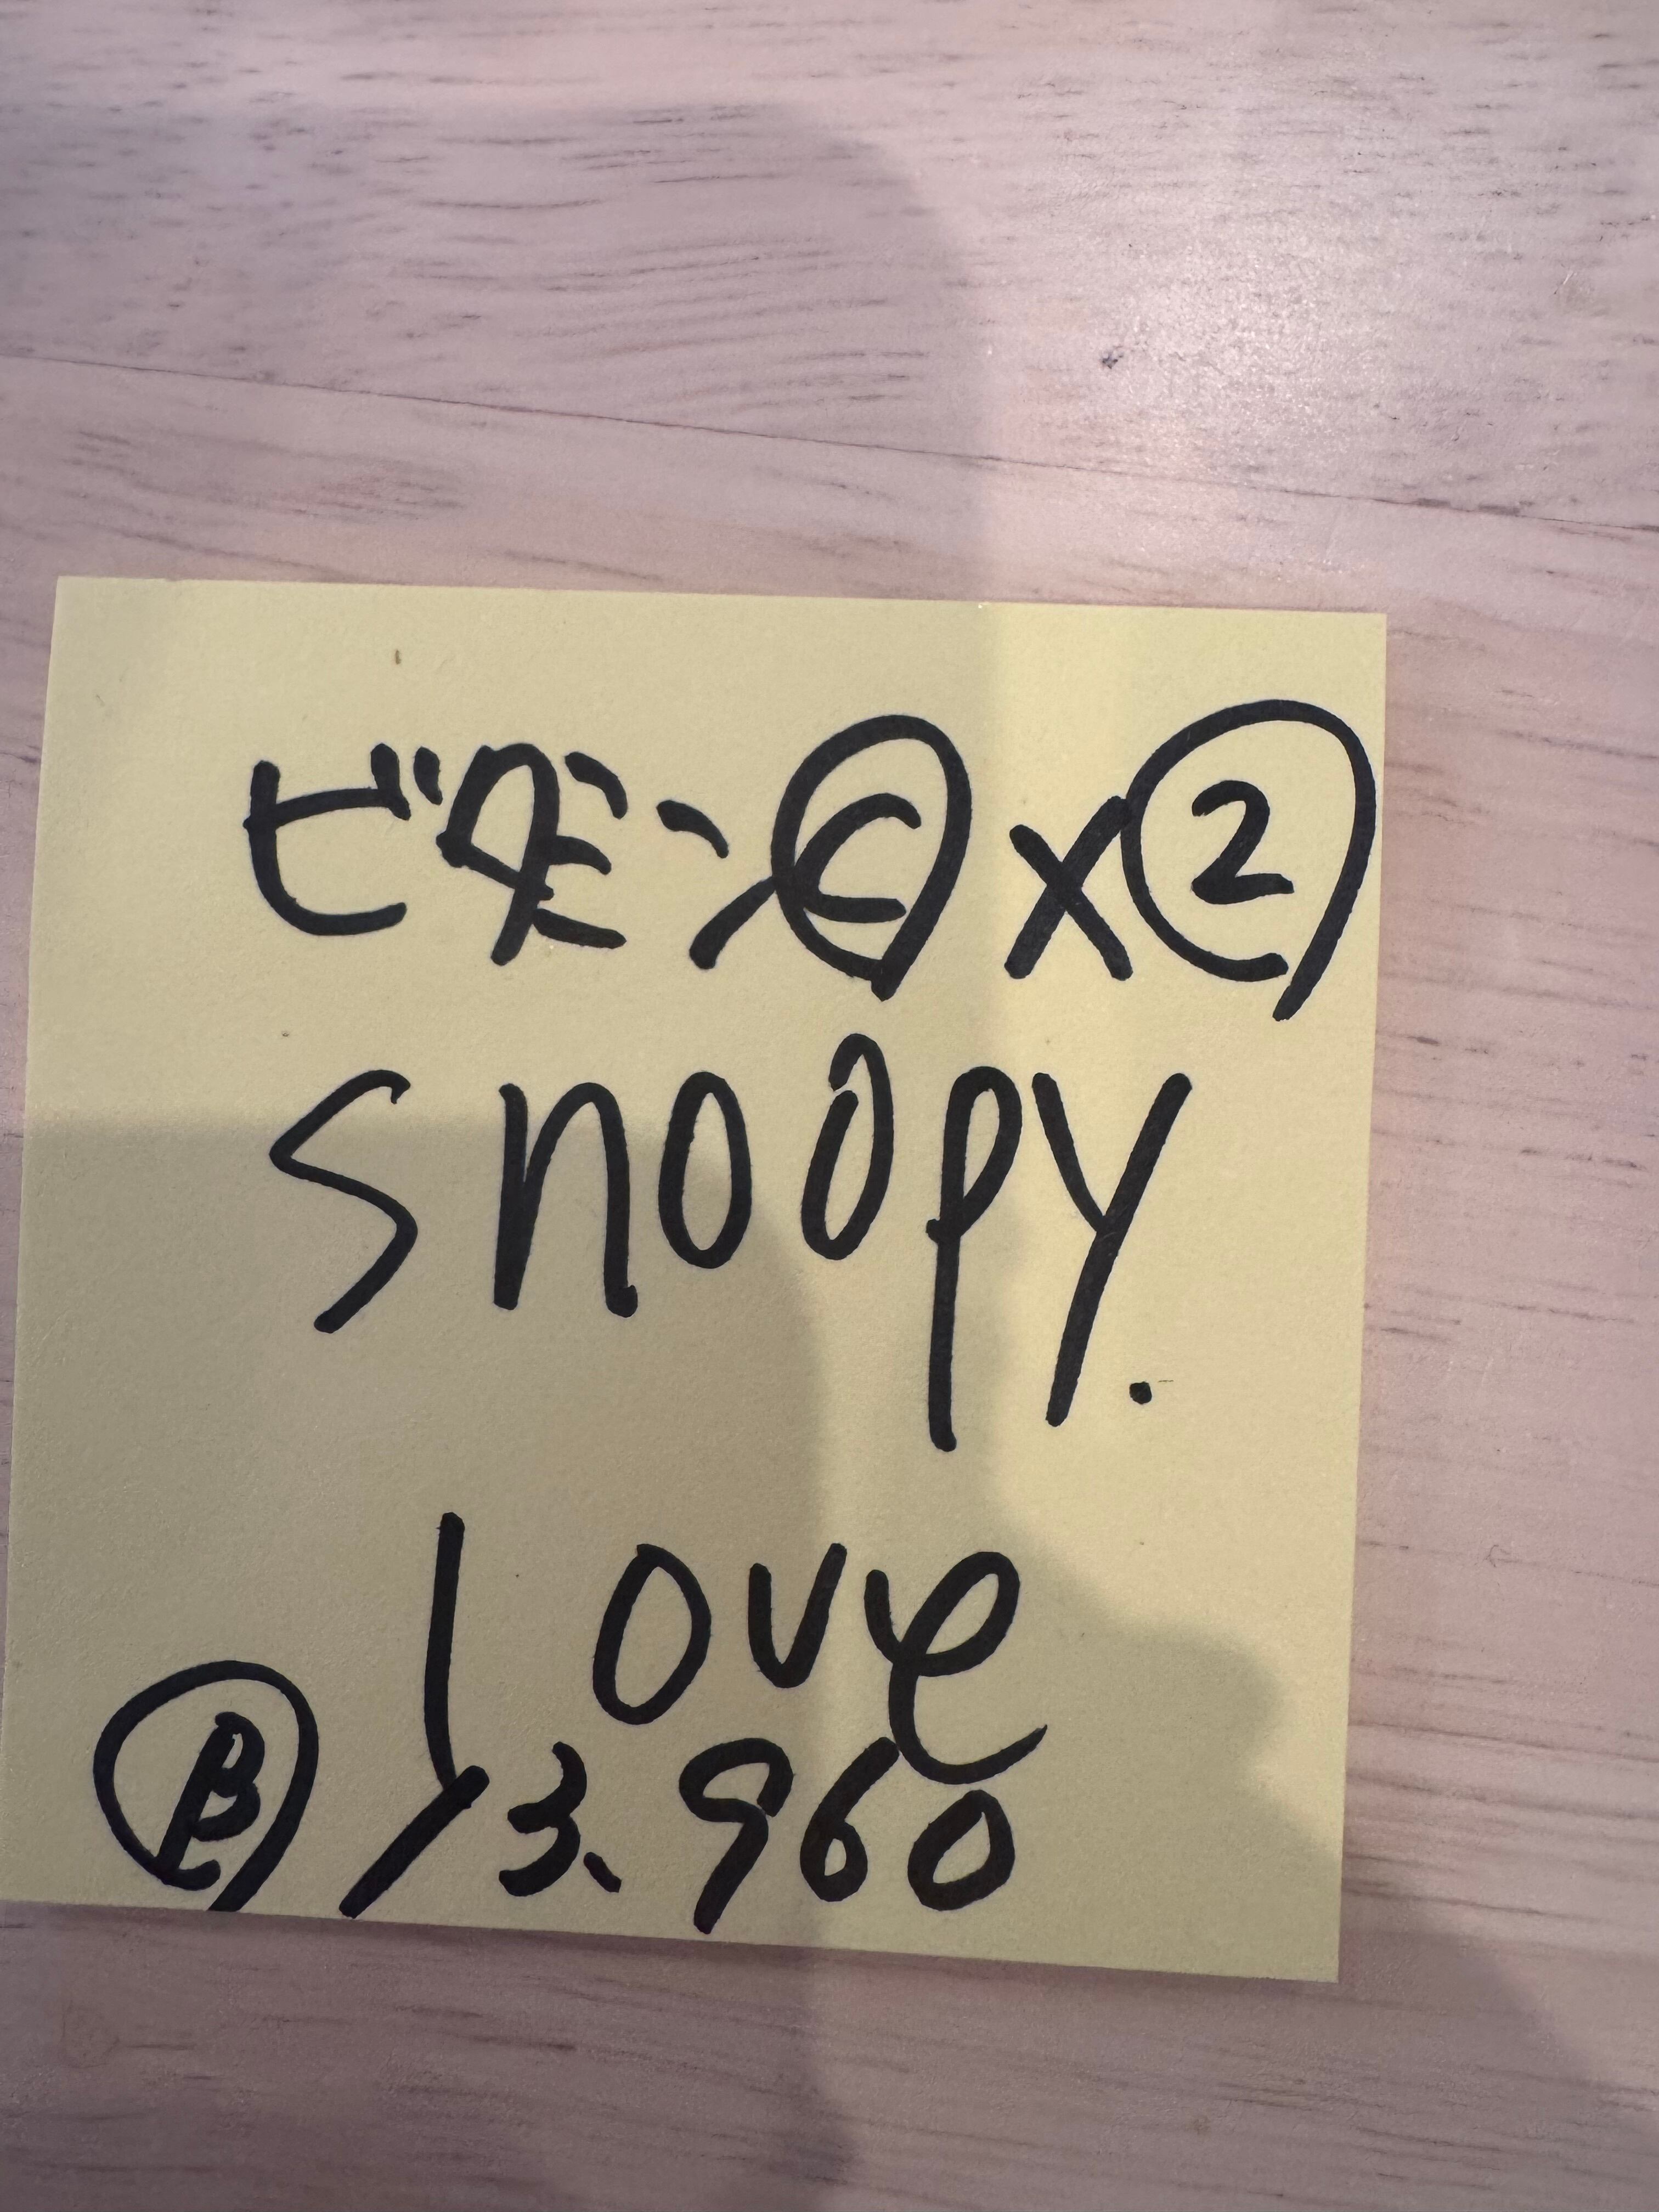 ビタミンⒸ×②
snoopy.
love
Ⓑ 3,960